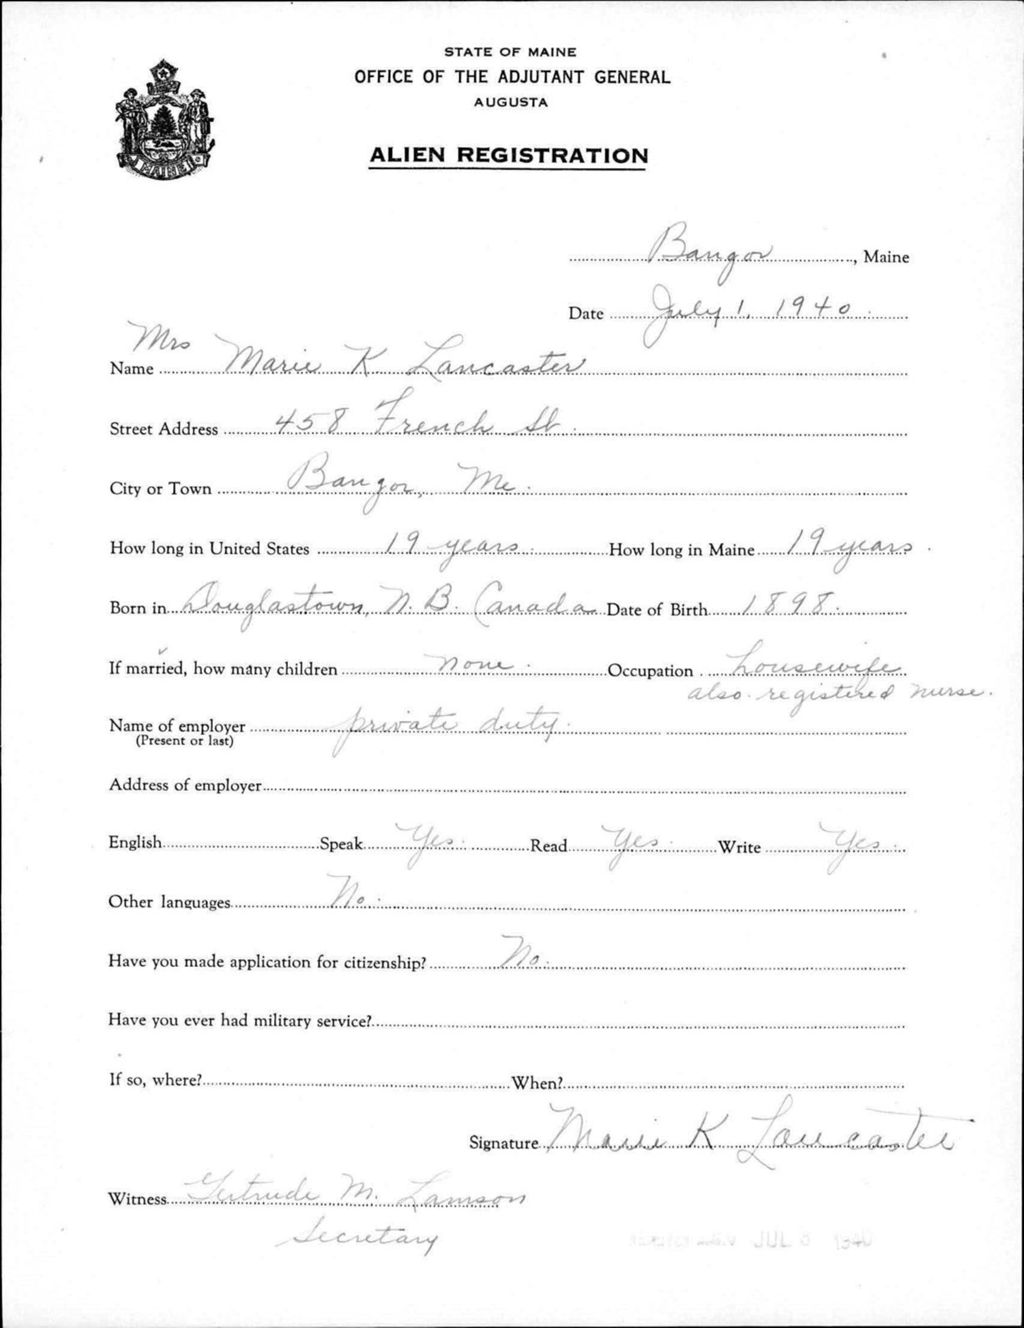 STATE OF MAINE
OFFICE OF THE ADJUTANT GENERAL
AUGUSTA
ALIEN REGISTRATION
MAINE
Bangor, Maine
Date July 1, 1940
Mrs
Name Marie K Lancaster
Street Address 458 French St.
City or Town Bangor, Me.
How long in United States 19 years. How long in Maine 19 years.
Born in Douglastown, N. B. Canada Date of Birth 1898.
If married, how many children none. Occupation housewife
also registered nurse.
Name of employer private duty.
(Present or last)
Address of employer
English Speak Yes. Read Yes. Write Yes.
Other languages No.
Have you made application for citizenship? No.
Have you ever had military service?
If so, where? When?
Signature Marie K Lancaster
Witness Gertrude M. Lamson
Secretary
JUL 8 1940